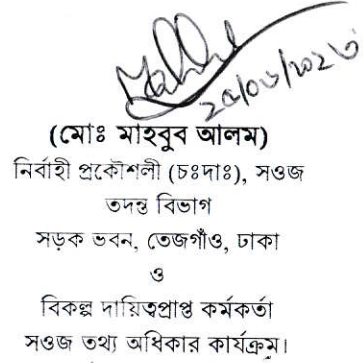 ২৫/০৬/২০২৩
(মোঃ মাহবুব আলম)
নির্বাহী প্রকৌশলী (চঃদাঃ), সওজ
তদন্ত বিভাগ
সড়ক ভবন, তেজগাঁও, ঢাকা
ও
বিকল্প দায়িত্বপ্রাপ্ত কর্মকর্তা
সওজ তথ্য অধিকার কার্যক্রম।